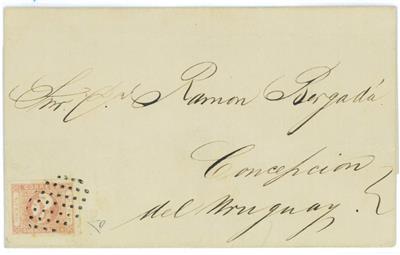 Snr. Dn Ramon Bergadá
Concepcion
del Uruguay.